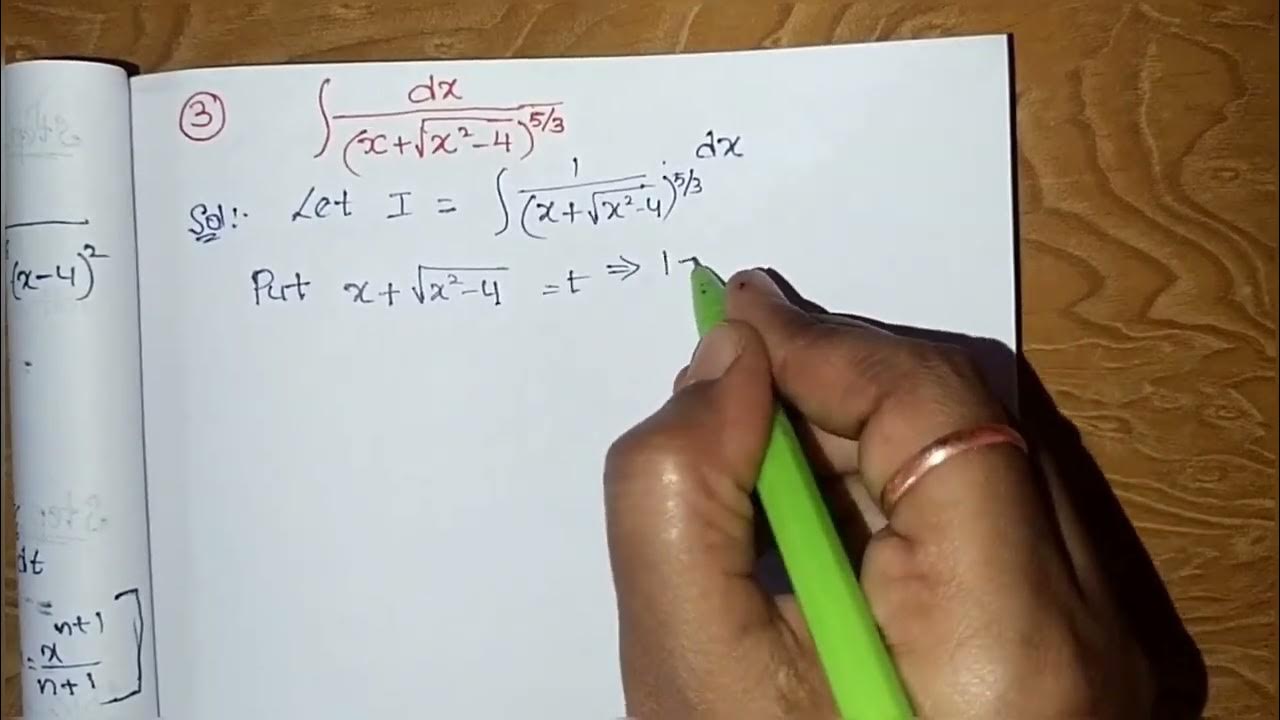 ③ ∫ dx / (x+√x²-4)^5/3
Sol:- Let I = ∫ 1 / (x+√x²-4)^5/3 dx
Put x+√x²-4 = t ⇒ 1
(x-4)²
dt
=
x^n+1
= ―
n+1